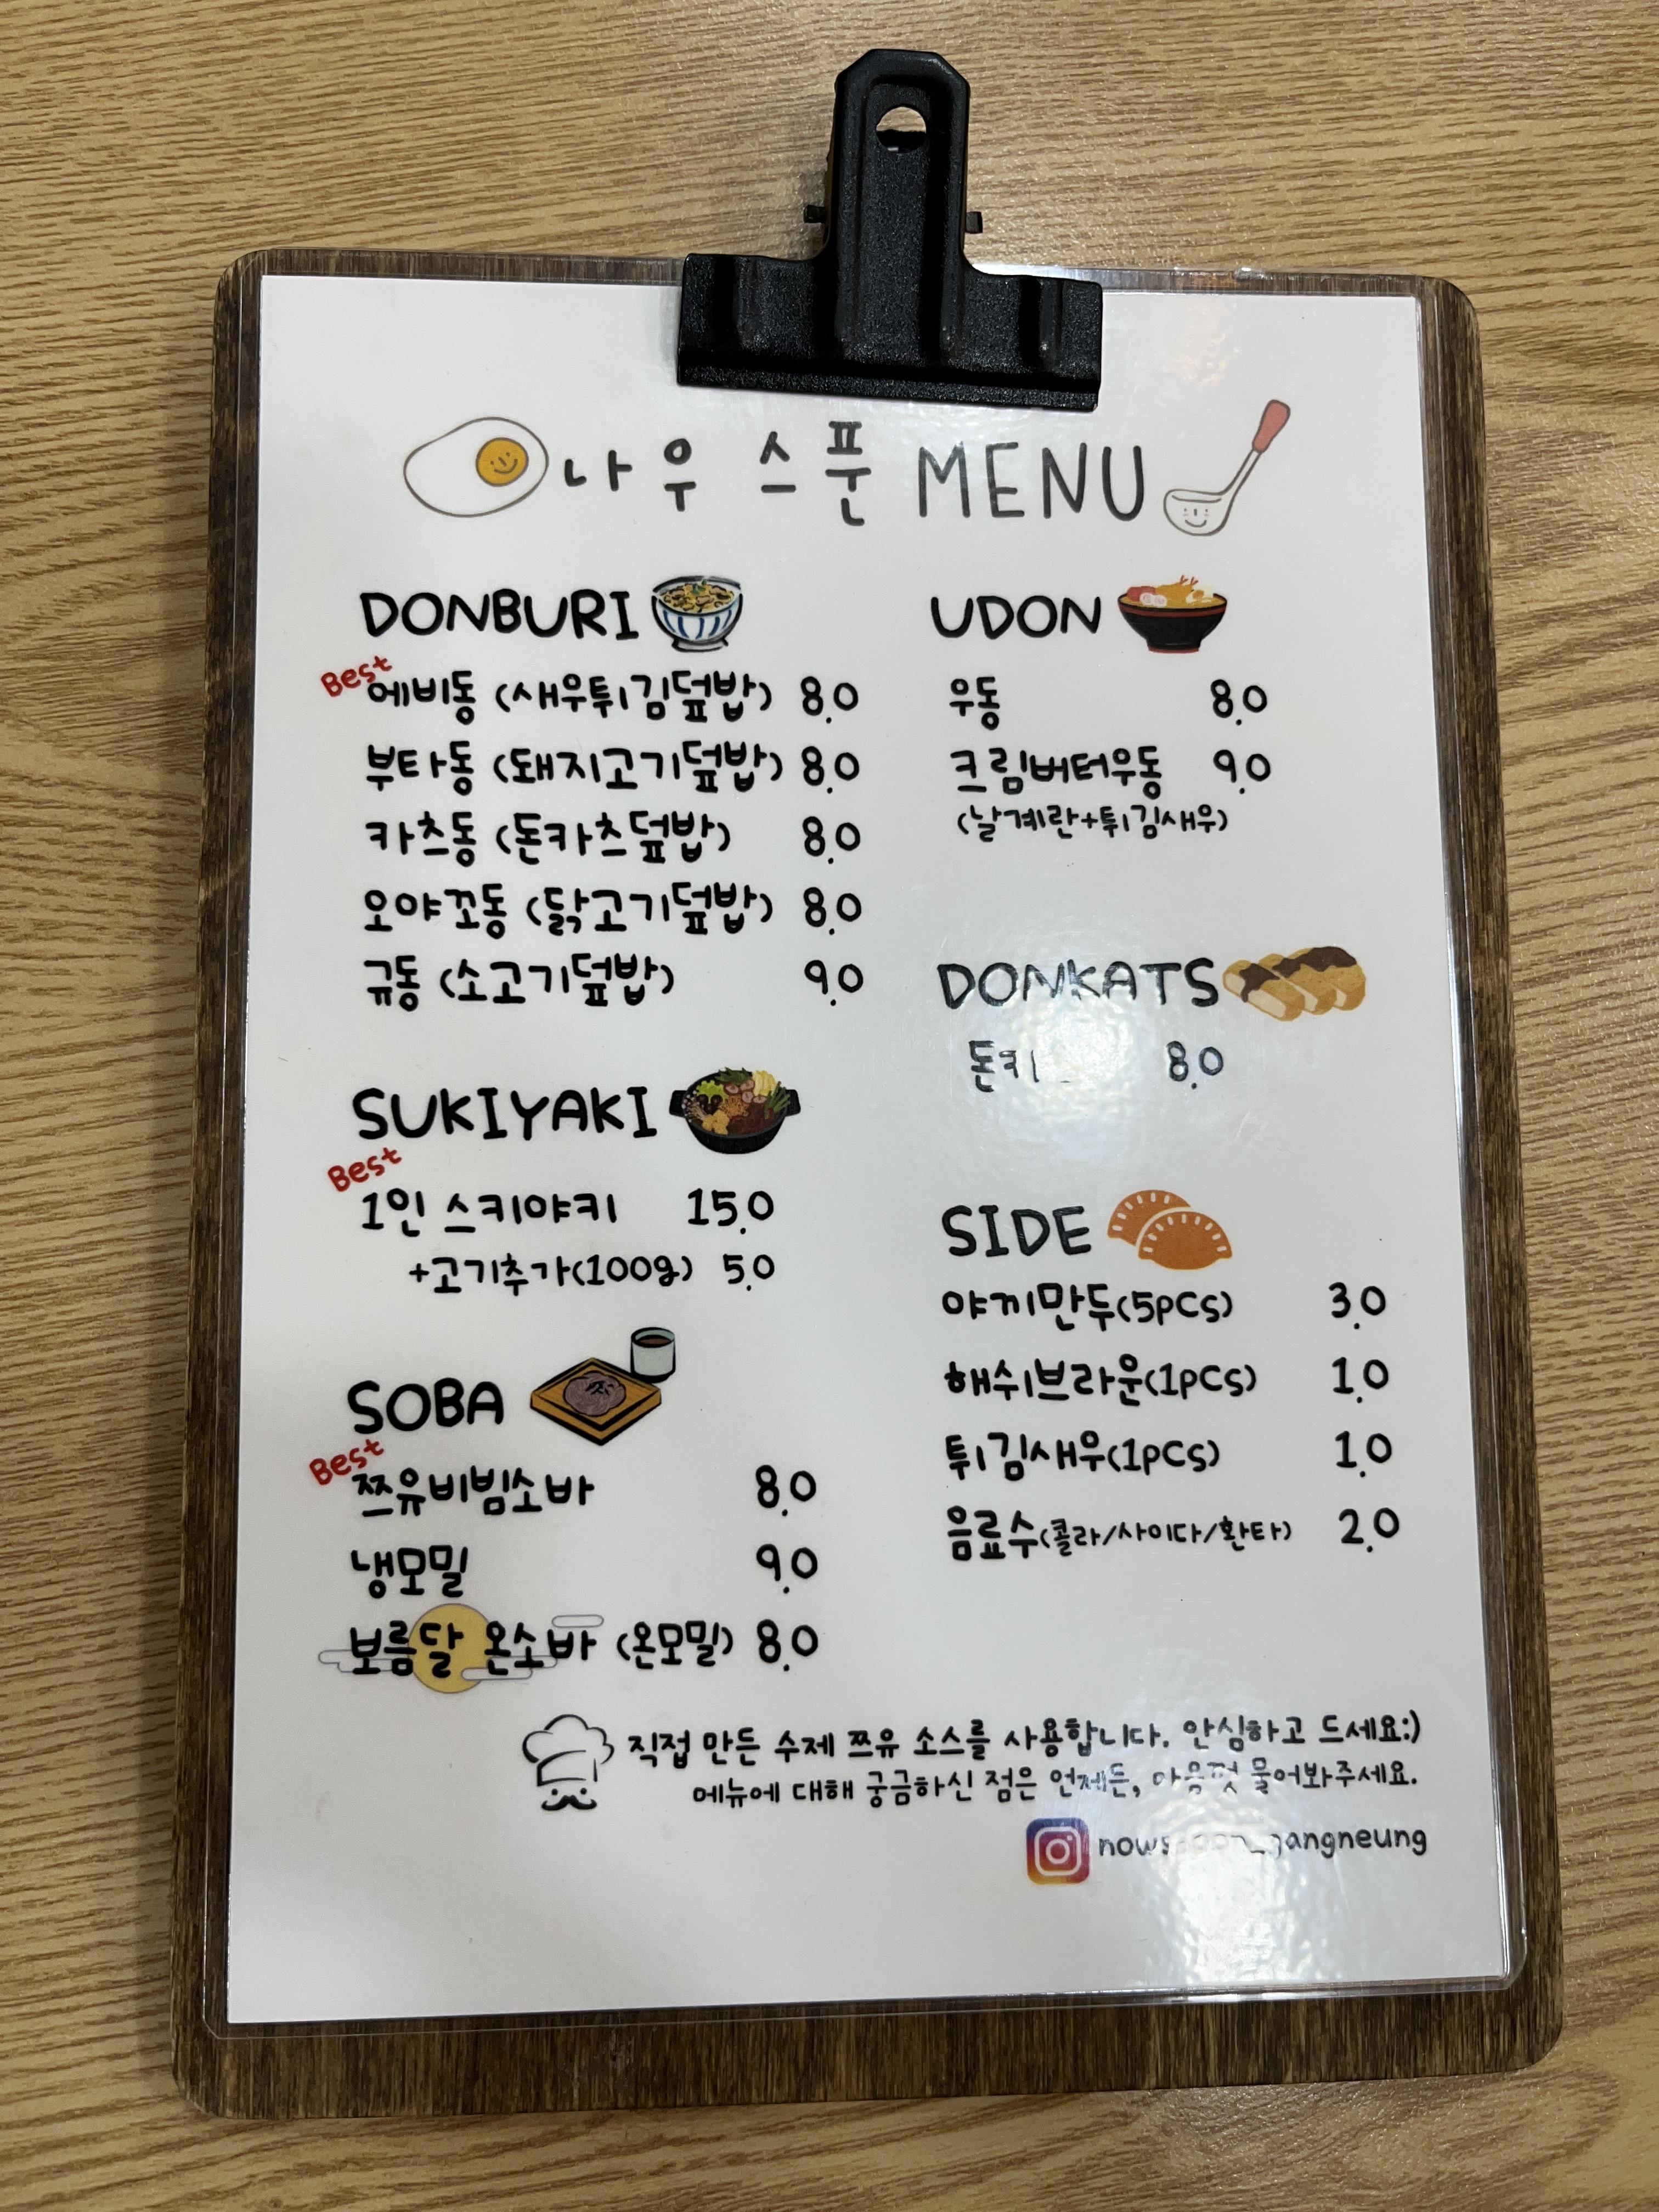 나우 스푼 MENU
DONBURI
Best
에비동 (새우튀김덮밥) 8.0
부타동 (돼지고기덮밥) 8.0
카츠동 (돈카츠덮밥) 8.0
오야꼬동 (닭고기덮밥) 8.0
규동 (소고기덮밥) 9.0
SUKIYAKI
Best
1인 스키야키 15.0
+고기추가(100g) 5.0
SOBA
Best
쯔유비빔소바 8.0
냉모밀 9.0
보름달 온소바 (온모밀) 8.0
UDON
우동 8.0
크림버터우동 9.0
(날계란+튀김새우)
DONKATS
8.0
SIDE
야끼만두(5pcs) 3.0
해쉬브라운(1pcs) 1.0
튀김새우(1pcs) 1.0
음료수(콜라/사이다/환타) 2.0
직접 만든 수제 쯔유 소스를 사용합니다. 안심하고 드세요:)
메뉴에 대해 궁금하신 점은 언제든, 마음껏 물어봐주세요.